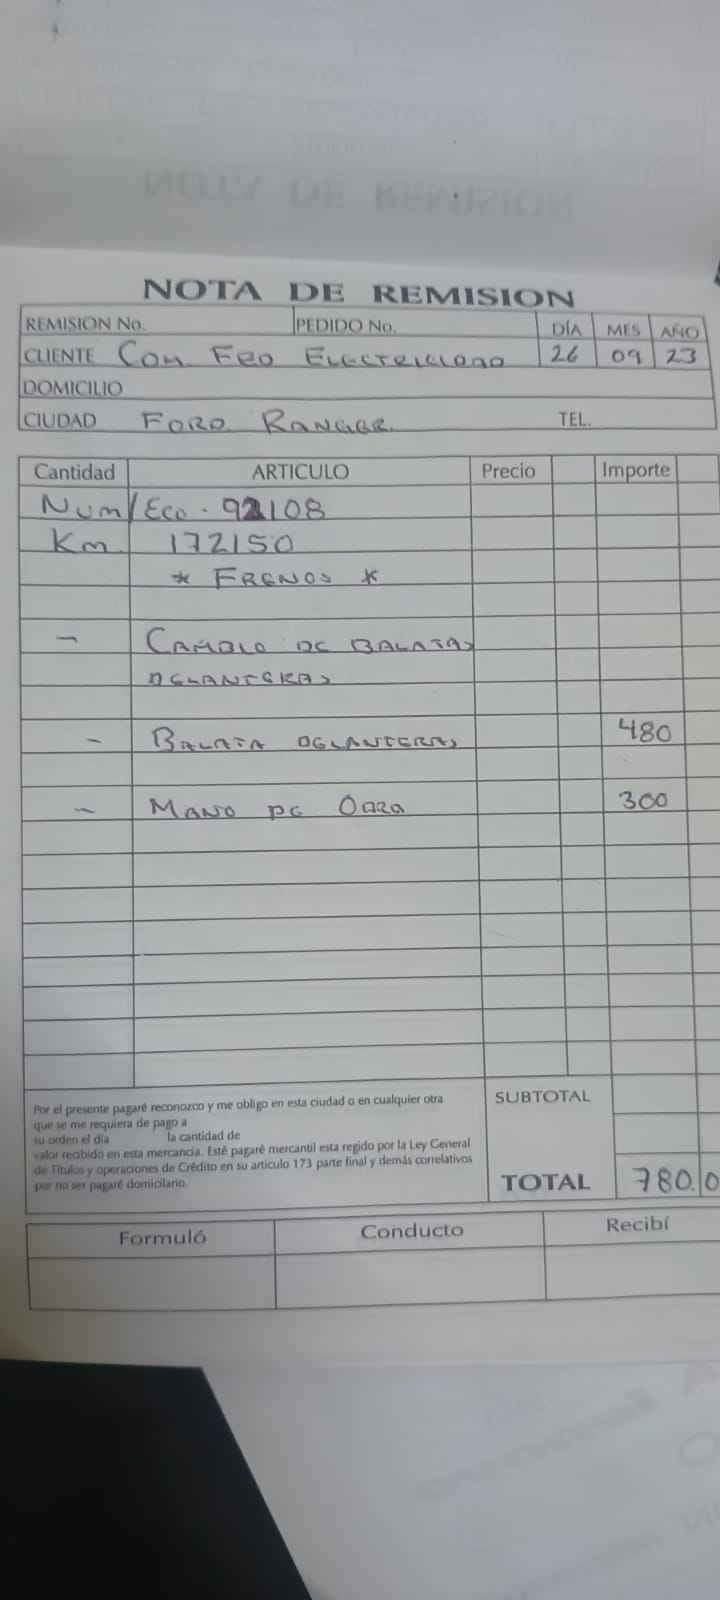 NOTA DE REMISION
REMISION No. PEDIDO No. DÍA MES AÑO
CLIENTE Com. Fed Electricidad 26 09 23
DOMICILIO
CIUDAD FORD RANGER. TEL.
Cantidad ARTICULO Precio Importe
Num/Eco. 92108
Km 172150
* FRENOS *
- CAMBIO DE BALATAS
DELANTERAS
- BALATA DELANTERAS 480
- MANO DE OBRA 300
Por el presente pagaré reconozco y me obligo en esta ciudad o en cualquier otra
que se me requiera de pago a
su orden el día la cantidad de
valor recibido en esta mercancia. Esté pagaré mercantil esta regido por la Ley General
de Títulos y operaciones de Crédito en su articulo 173 parte final y demás correlativos
por no ser pagaré domiciliario.
SUBTOTAL
TOTAL 780.0
Formuló Conducto Recibí